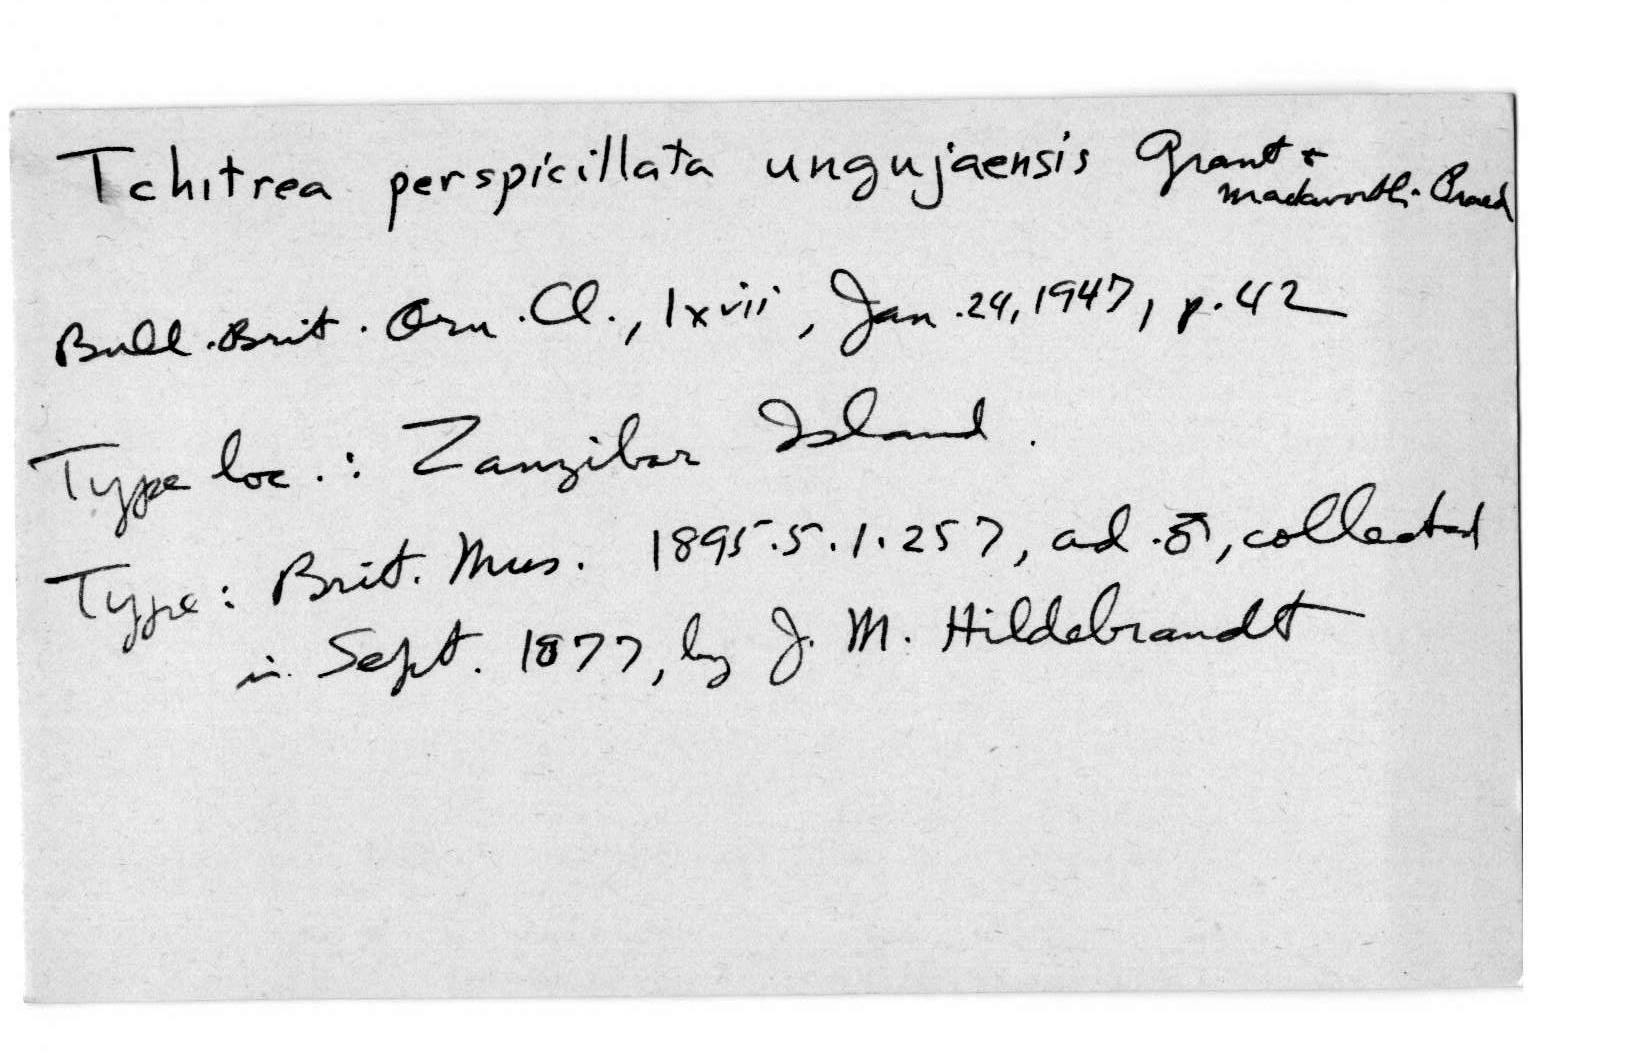 Tchitrea perspicillata ungujaensis Grant & Mackworth-Praed
Bull. Brit. Orn. Cl., lxvii, Jan. 24, 1947, p. 42
Type loc.: Zanzibar Island.
Type: Brit. Mus. 1895.5.1.257, ad. ♂, collected
in Sept. 1877, by J. M. Hildebrandt